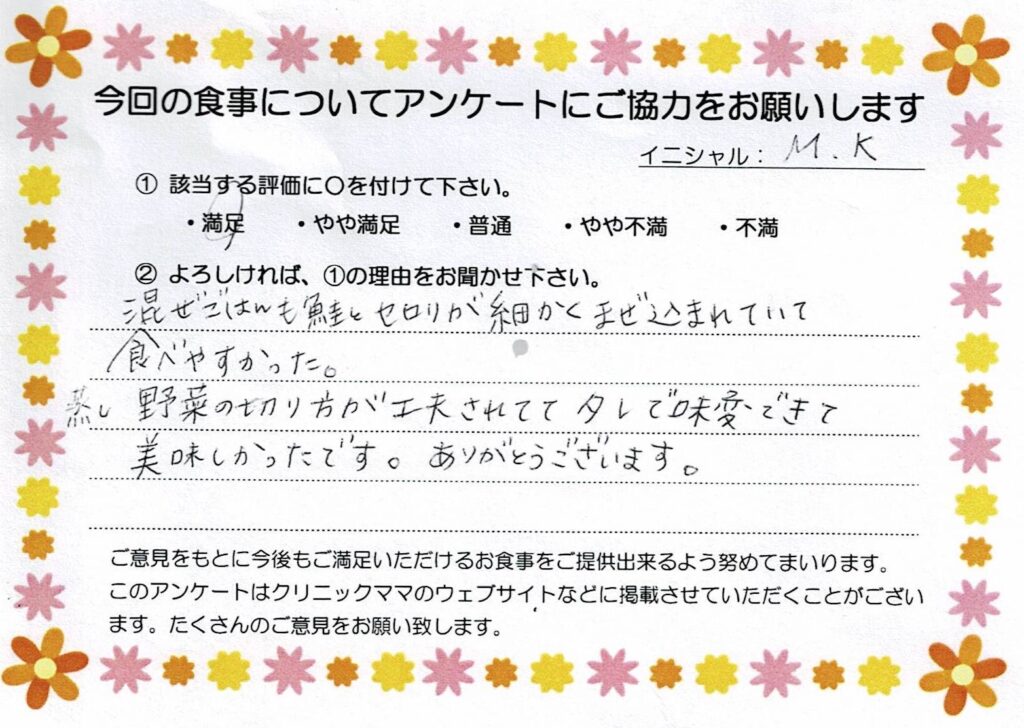 今回の食事についてアンケートにご協力をお願いします
イニシャル： M.K
① 該当する評価に〇を付けて下さい。
・満足 ・やや満足 ・普通 ・やや不満 ・不満
② よろしければ、①の理由をお聞かせ下さい。
混ぜごはんも鮭とセロリが細かくまぜ込まれていて
食べやすかった。
蒸し野菜の切り方が工夫されてて タレで味変できて
美味しかったです。ありがとうございます。
ご意見をもとに今後もご満足いただけるお食事をご提供出来るよう努めてまいります。
このアンケートはクリニックママのウェブサイトなどに掲載させていただくことがござい
ます。たくさんのご意見をお願い致します。